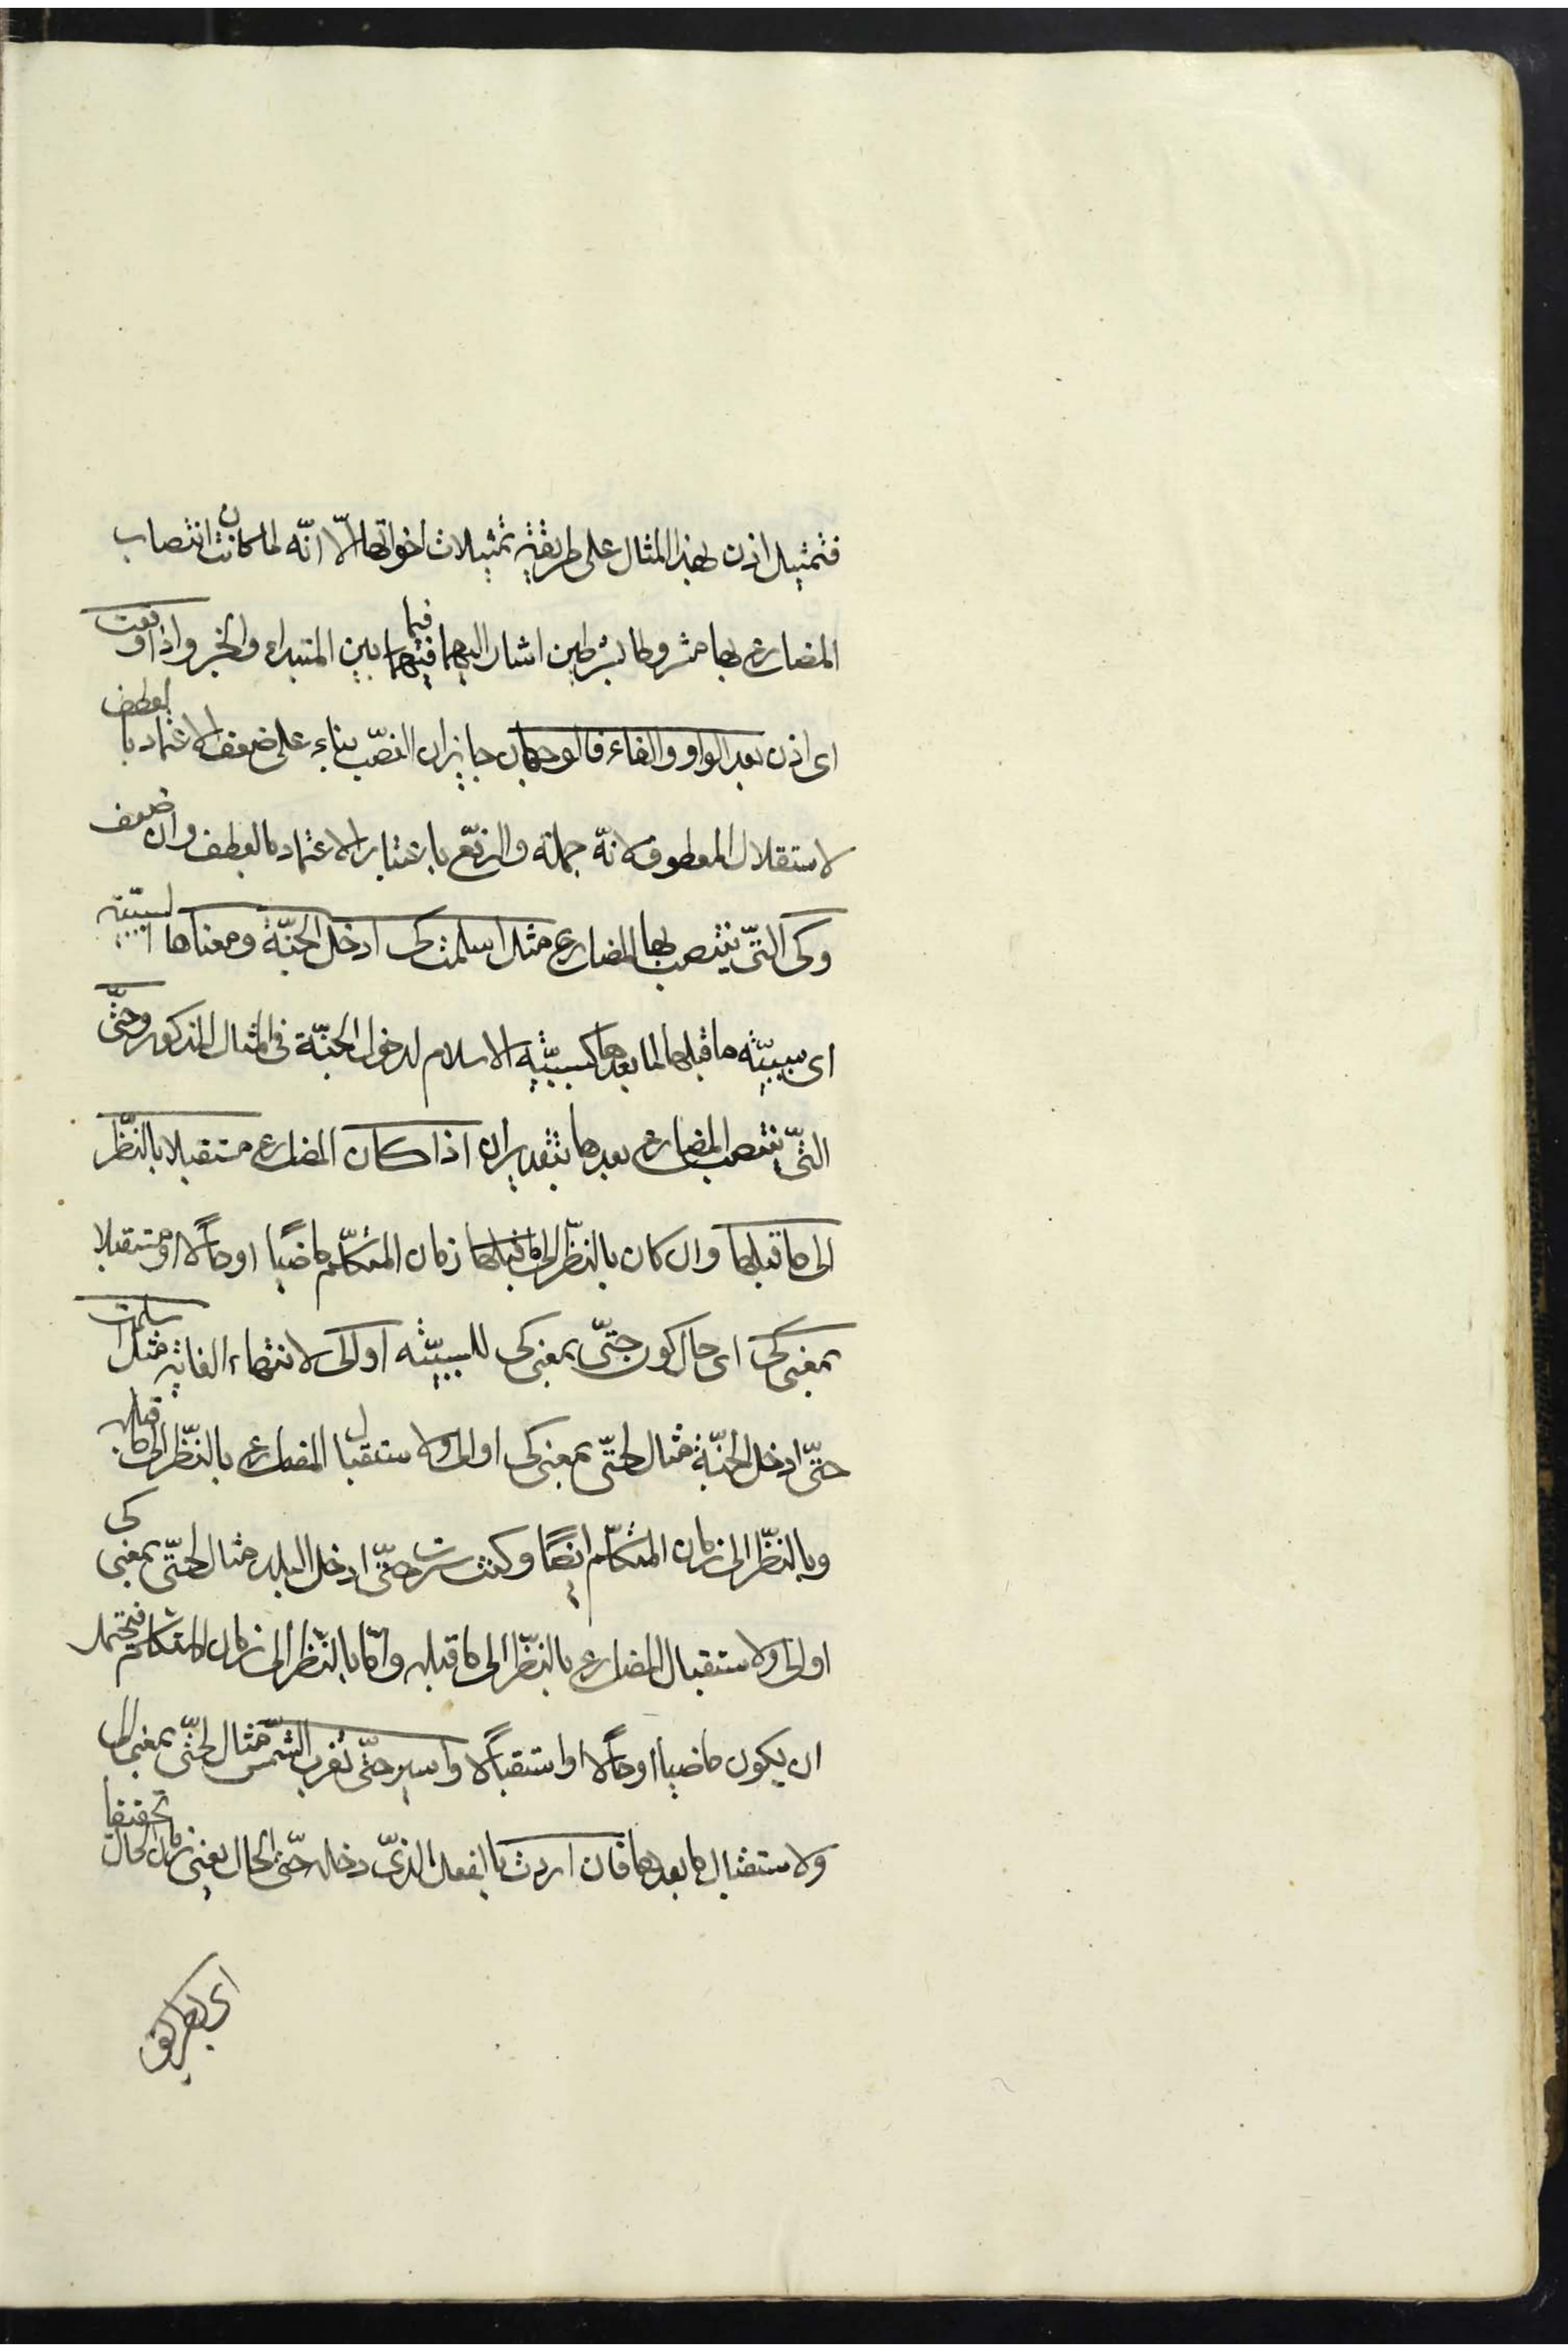 فتمثيل اذن بهذا المثال على طريقة تمثيلات اخواتها الّا انّه لما كان انتصاب
المضارع بها مشروطا بشرطين اشار اليهما فيما بين المتبداء والخبر واذا وقعت
اى اذن بعد الواو والفاء فالوجهان جايزان النصب بناء على ضعف الاعتماد بالعطف
لاستقلال المعطوف لانّه جملة والرّفع باعتبار الاعتماد بالعطف وان ضعف
وكى التّى ينتصب بها المضارع مثل اسلمت كى ادخل الجنّة ومعناها السببيّة
اى سببيّة ما قبلها لما بعدها كسببيّة الاسلام لدخول الجنّة فى المثال المذكور وحتّى
التّى ينتصب المضارع بعدها بتقدير ان اذا كان المضارع مستقبلا بالنّظر
الى ما قبلها وان كان بالنّظر الى ما قبلها زمان المتكلّم ماضيًا او حالًا او مستقبلا
بمعنى كى اى حال كون حتّى بمعنى كى للسببيّة او الى لانتهاء الغاية مثل اسلمت
حتّى ادخل الجنّة مثال لحتّى بمعنى كى او الى ولاستقبال المضارع بالنّظر الى ما قبله
وبالنّظر الى زمان المتكلّم ايضًا وكنت سرت حتّى ادخل البلد مثال لحتّى بمعنى كى
او الى ولاستقبال المضارع بالنّظر الى ما قبله وامّا بالنّظر الى زمان المتكلم فيحتمل
ان يكون ماضيا او حالًا او استقبالًا واسير حتّى تغرب الشّمس مثال لحتّى بمعنى الى
ولاستقبال ما بعدها فان اردت بالفعل الذّى دخله حتّى الحال يعنى زمان الحال تحقيقا
اى بطريق